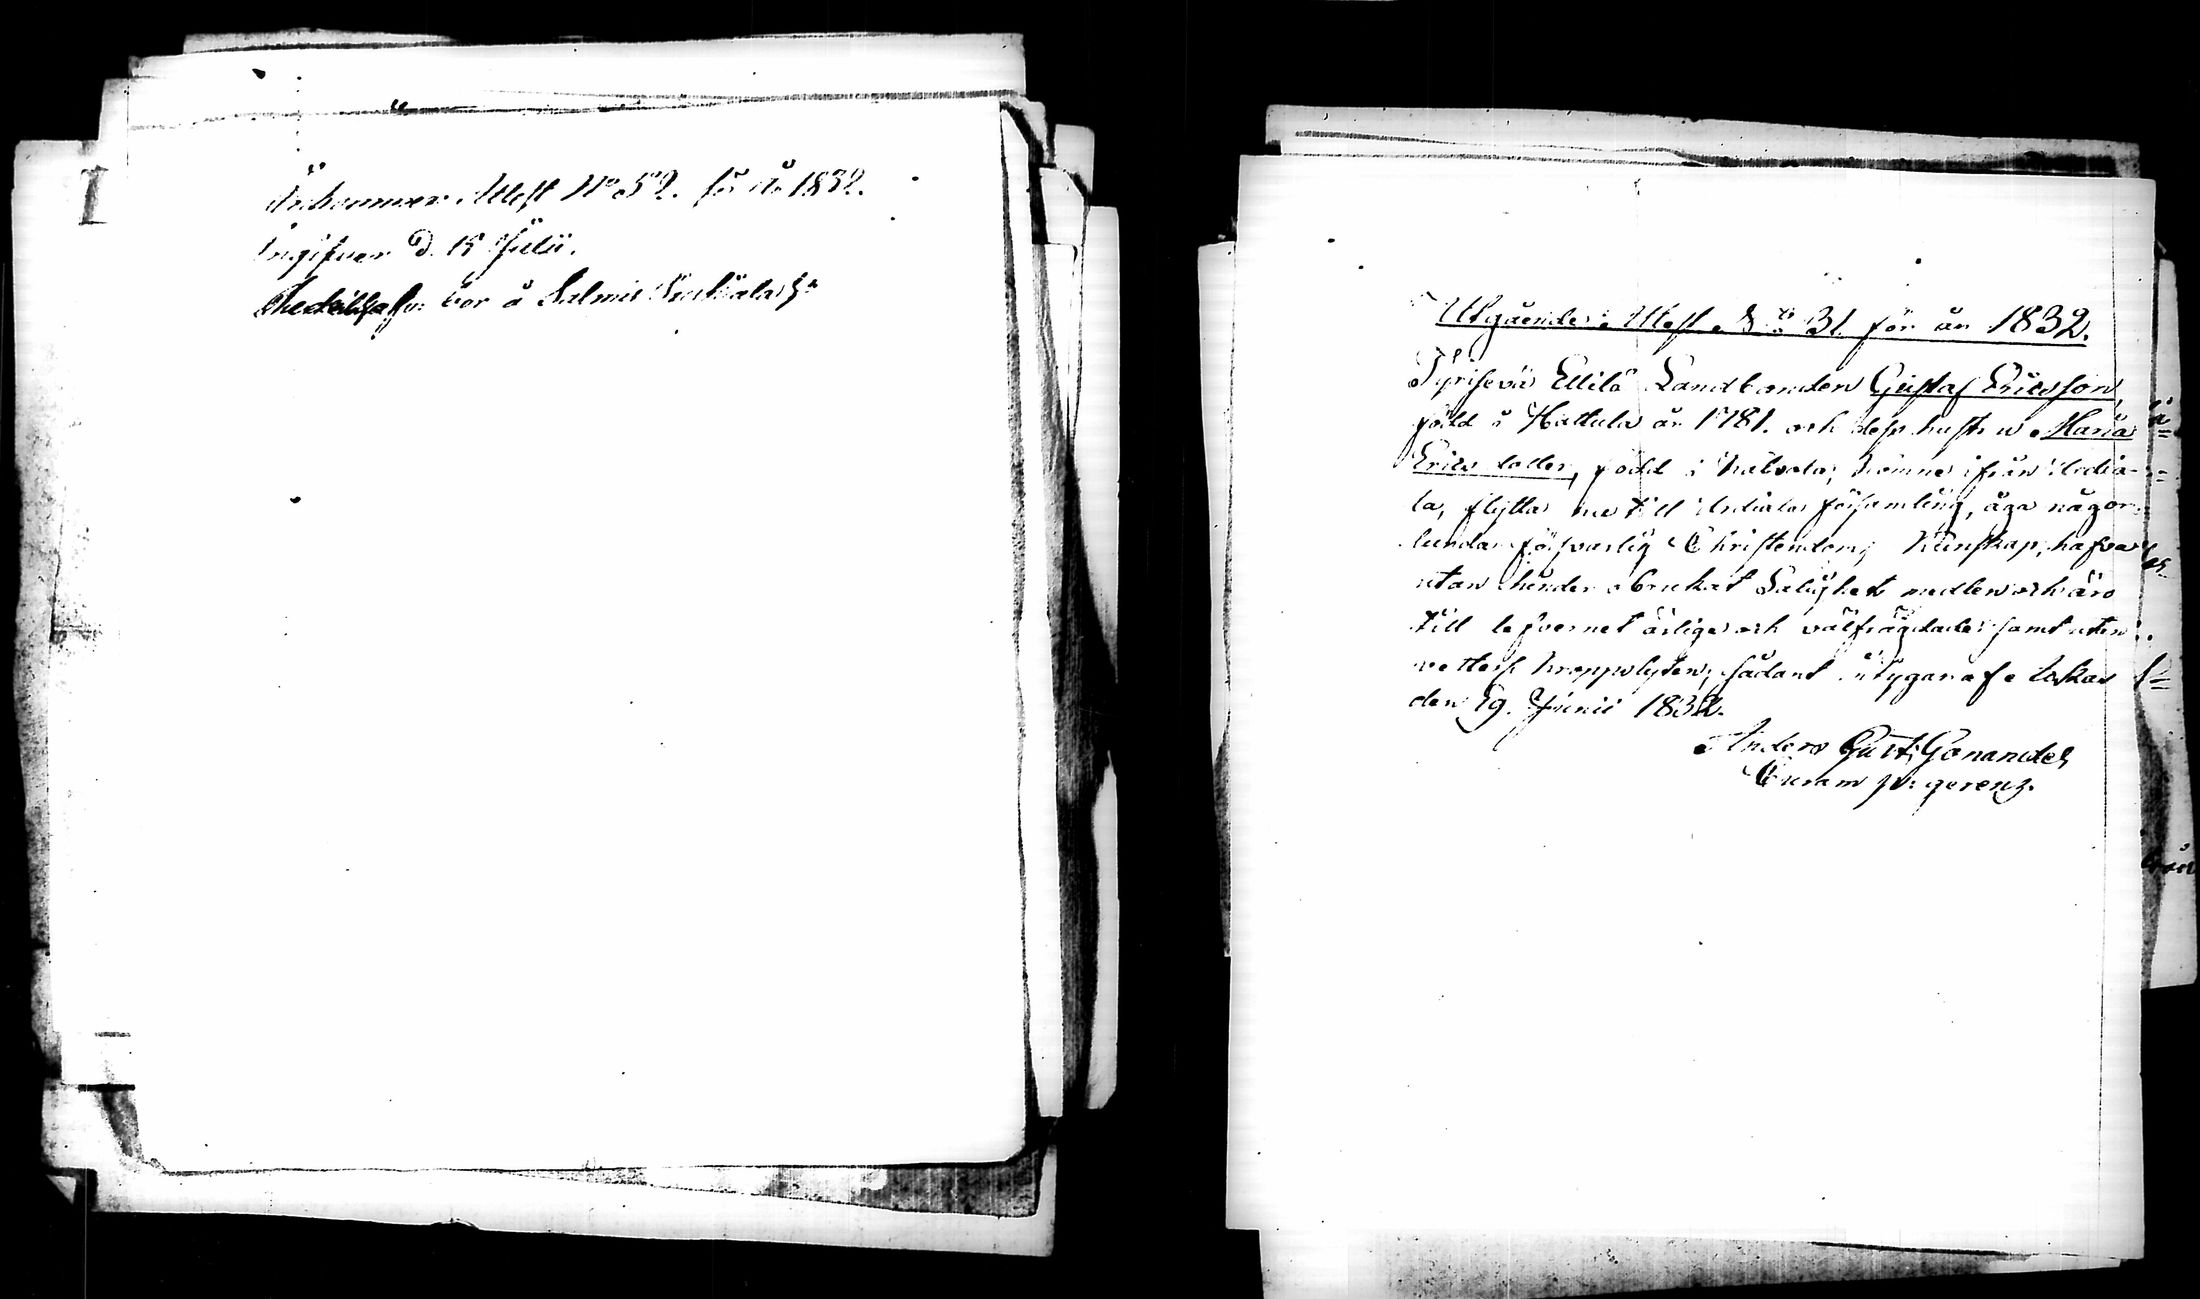 Ankommer Attest No 52. för år 1832.
Ingifven d. 15 Julii.
bor å Salmis
Utgående Attest No 31 för år 1832.
Tyrisevä Ellilä Landbonden Gustaf Ericsson,
född i Hattula år 1781. och dess hustru Maria
Ericsdotter, född i Kalvola, komne ifrån Urdia-
la, flytta nu till Urdiala församling, äga någor-
lunda försvarlig Christendoms Kunskap, hafva
utan hinder brukat Salighets medlen och äro
till lefvernet ärlige och välfrägdade samt utan
Kroppslyten, sådant intygar af Loskas
den 29. Junii 1832.
Anders Gust. Gonander
Curam p: gerens.